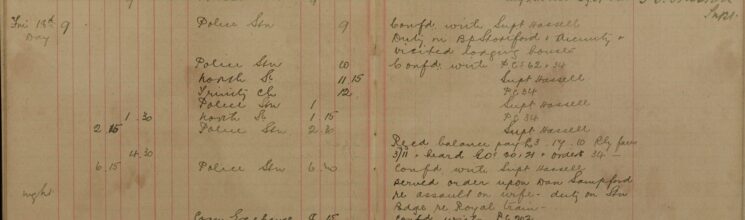 Fri 13th 9 Police Stn 9 Confd with Supt Hassell
Day Duty on Bp Stortford & vicinity &
visited lodging houses
Police Stn 10 Confd with P.Cs 62 & 34
North St 11.15 Supt Hassell
Trinity Ch 12 PC 34
Police Stn 1 Supt Hassell
1.30 North St 1.15 PC 34
2 15 Police Stn 2.30 Supt Hassell
Recd balance pay £3.17.10 Rly fare
4.30 3/11 & heard GO: 30, 31 & orders 34
6.15 Police Stn 6.30 Confd with Supt Hassell
served order upon Dan Sampford
night re assault on wife - duty on Stn
Bdge re Royal train -
Corn Exchange 9 15 Confd with PC